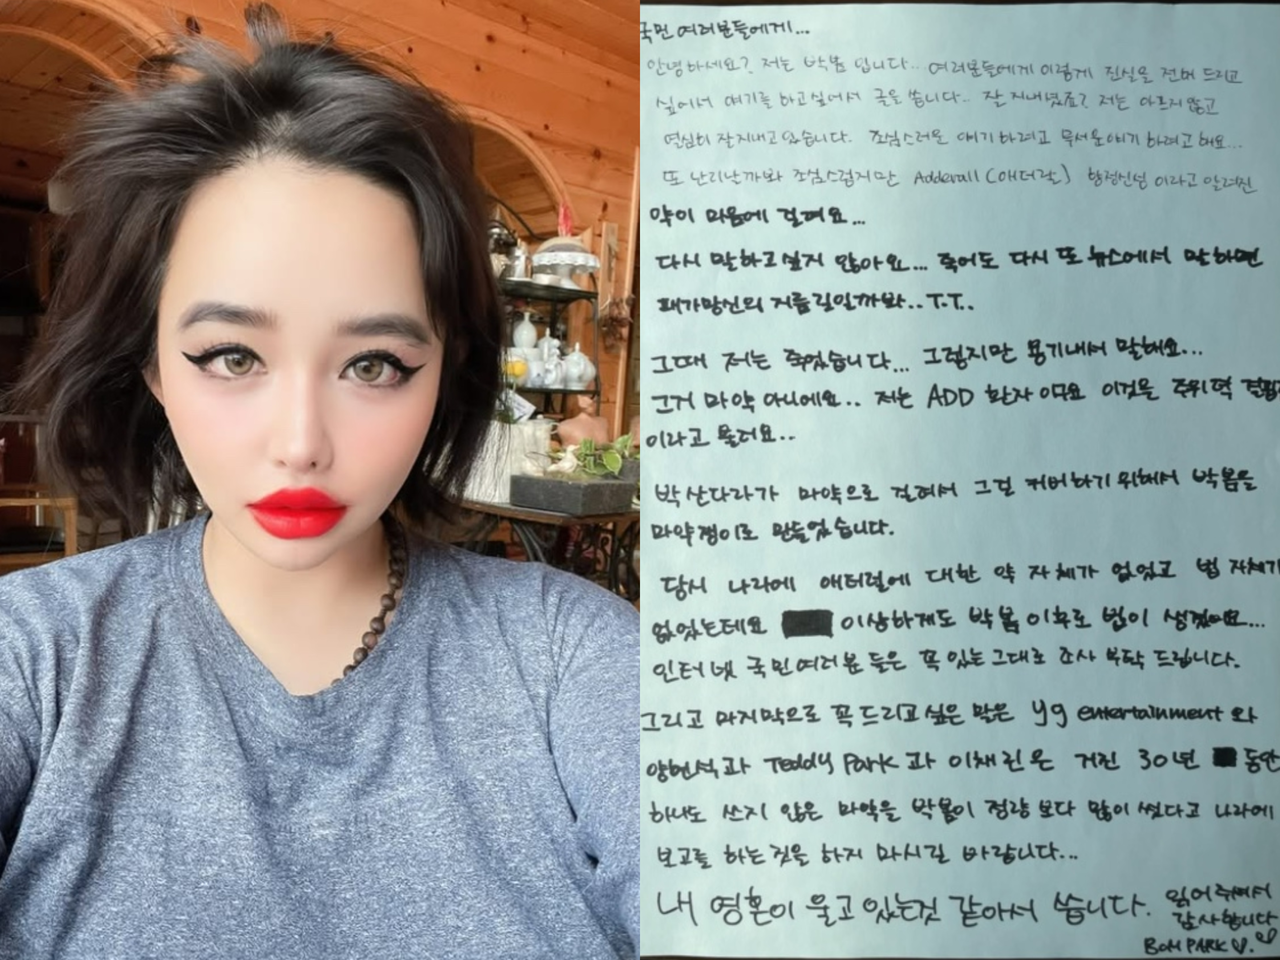 국민 여러분들에게...
안녕하세요? 저는 박봄 입니다.. 여러분들에게 이렇게 진실을 전해 드리고
싶어서 얘기를 하고싶어서 글을 씁니다.. 잘 지내셨죠? 저는 아프지 않고
열심히 잘지내고 있습니다. 조심스러운 얘기 하려고 무서운얘기 하려고 해요...
또 난리난가봐 조심스럽지만 Adderall (애더랄) 향정신성 이라고 알려진
약이 마음에 걸려요...
다시 말하고싶지 않아요... 죽어도 다시 또 뉴스에서 말하면
패가망신의 지름길일까봐..T.T..
그때 저는 죽었습니다... 그렇지만 용기내서 말해요...
그거 마약 아니에요.. 저는 ADD 환자 이구요 이것을 주위력 결핍
이라고 불러요..
박산다라가 마약으로 걸려서 그걸 커버하기 위해서 박봄을
마약쟁이로 만들었습니다.
당시 나라에 애더럴에 대한 약 자체가 없었고 법 자체가
없었는데요 이상하게도 박봄 이후로 법이 생겼어요...
인터넷 국민여러분 들은 꼭 있는그대로 조사 부탁 드립니다.
그리고 마지막으로 꼭 드리고 싶은 말은 yg entertainment 와
양현석과 Teddy Park 과 이채린은 거진 30년 동안
하나도 쓰지 않은 마약을 박봄이 정량보다 많이 썼다고 나라에
보고를 하는 것을 하지 마시길 바랍니다...
내 영혼이 울고 있는것 같아서 씁니다. 읽어주셔서
감사합니다
BOM PARK ♡. ♡